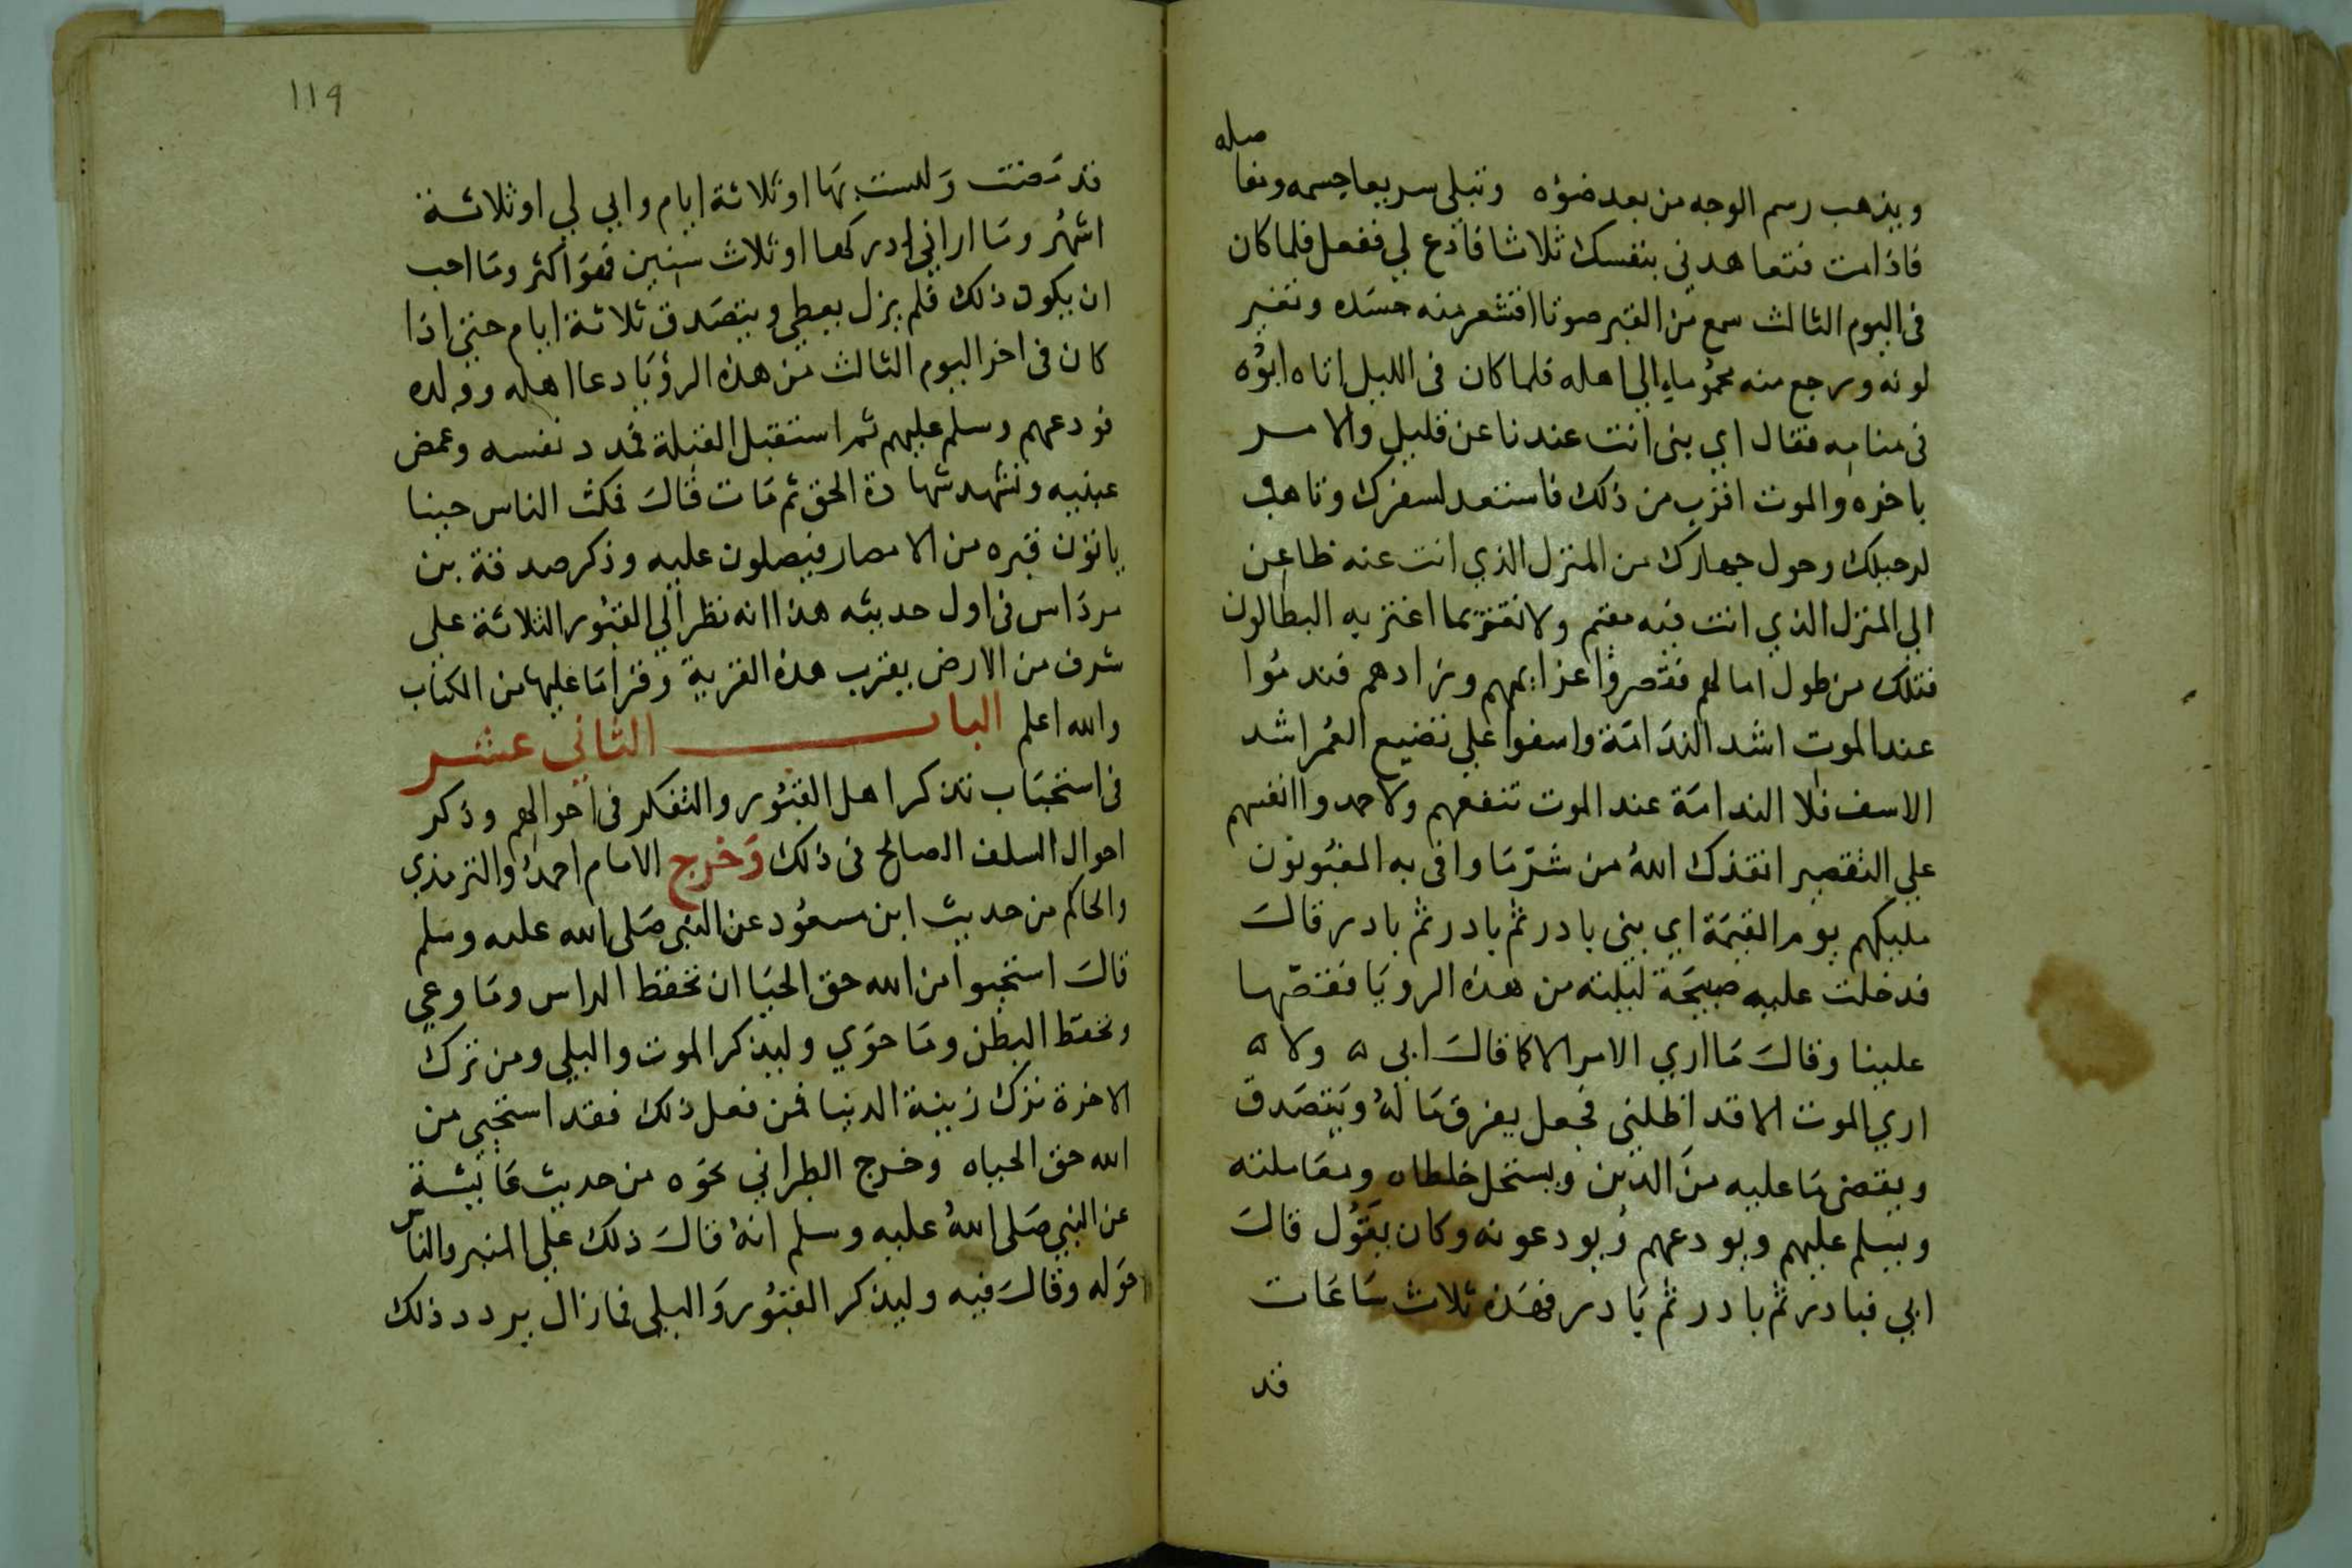 ويذهب رسم الوجه من بعد ضوُه وتبلى سريعا جسمه ومفا
صله
فاذامت فتعاهدني بنفسك ثلاثا فاذع لي ففعل فلما كان
في اليوم الثالث سمع من القبر صوتا اقشعر منه جسَده وتغير
لونه ورجع منه محمُوماٍ الي اهله فلما كان في الليل اتاه ابوُه
في منامه فقال اي بنى انت عندنا عن قليل والامر
باخره والموت اقرب من ذلك فاستعد لسفرك وتاهب
لرحيلك وحول جهازك من المنزل الذي انت عنه ظاعن
الي المنزل الذي انت فيه مقيم ولا تغتر بما اغتر به البطالون
قبلك من طول امالهم فقصروا عن زادهم فندمُوا
عند الموت اشد الندَامَة واسفوا علي تضيع العُمر اشد
الاسف فلا الندامَة عند الموت تنفعهم ولا حمدوا انفسهم
علي التقصير انقذك اللهُ من شرّ مَا وافى به المغبُونون
مليكهم يوم القيمَة اي بني بادر ثم بادر ثم بادر قالَ
فدخلت عليه صبيحَة ليلته من هذه الرويَا فقصّها
علينا وقالَ مَا اري الامر الا كما قالَ ابي ۵ ولا ۵
اري الموت الا قد اظلني فجعل يفرق مَا لهُ ويَتصَدق
ويقضى مَا عليه منَ الدين ويستحل خلطاه ومعَاملته
ويسلم عليهم ويودعهم ويودعونه وكان يقوُل قالَ
ابي فبادر ثم بادر ثم بَادر فهَذه ثلاث سَاعَات
قد
١١٩
قد مَضت وَليست بهَا او ثلاثة ايام واني لي او ثلاثة
اشهُر ومَا اراني ادركها او ثلاث سنين فهوَ اكثر ومَا احب
ان يكون ذلك فلم يزل يعطي ويتصَدق ثلاثة ايام حتى اذا
كان فى اخر اليوم الثالث من هذه الرؤيَا دعا اهله وولده
فودعهم وسلم عليهم ثم استقبل القبلة فمدد نفسه وغمض
عينيه وتشهد شهادة الحق ثم مَات قالَ فمكث الناس حينا
ياتون قبره من الامصار فيصلون عليه وذكر صدقة بن
مرداس في اول حديثه هذا انه نظر الي القبُور الثلاثة على
شرف من الارض بقرب هذه القرية وقرا مَا عليها من الكتاب
والله اعلم الباب الثاني عشر
في استحبَاب تذكر اهل القبُور والتفكر في احوالهم وذكر
احوال السلف الصالح في ذلك وَخرج الامام احمدُ والترمذي
والحاكم من حديث ابن مسعُود عن النبي صَلى الله عليه وسَلم
قالَ استحيوا من الله حق الحيَا ان تحفظ الراس ومَا وعي
وتحفظ البطن ومَا حوَي وليذكر الموت والبلي ومن ترك
الاخرة ترك زينة الدنيا فمن فعل ذلك فقد استحيى من
الله حق الحياه وخرج الطبراني نحوَه من حديث عَائشة
عن النبي صَلى اللهُ عليه وسلم انهُ قالَ ذلك علي المنبر والناس
حوَله وقالَ فيه وليذكر القبُور وَالبلى فما زال يردد ذلك